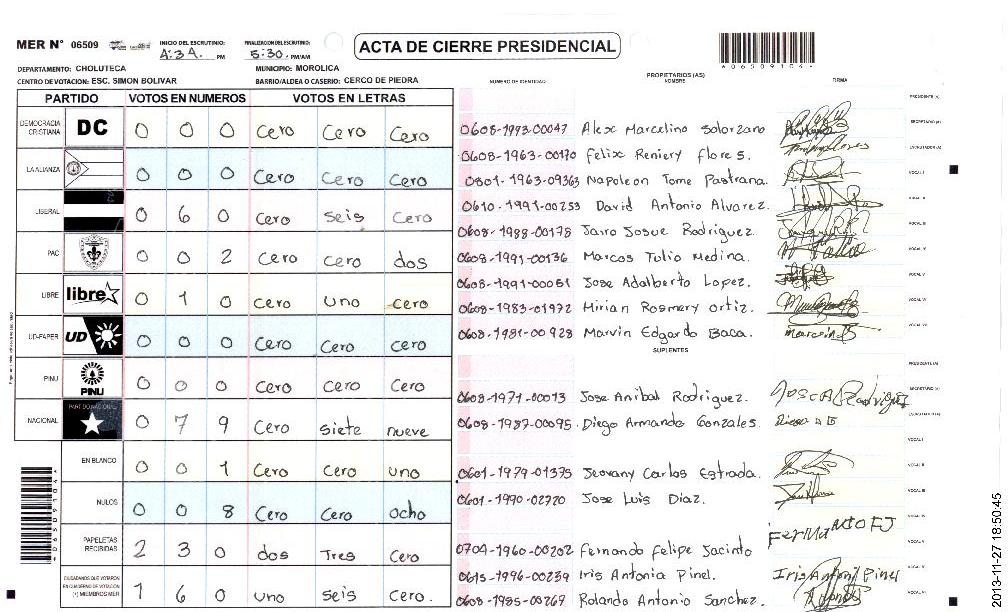 MER N° 06509 INICIO DEL ESCRUTINIO: 4:34 PM FINALIZACION DEL ESCRUTINIO: 5:30 PM/AM
ACTA DE CIERRE PRESIDENCIAL
*06509104*
DEPARTAMENTO: CHOLUTECA MUNICIPIO: MOROLICA
CENTRO DE VOTACION: ESC. SIMON BOLIVAR BARRIO/ALDEA O CASERIO: CERCO DE PIEDRA
PARTIDO VOTOS EN NUMEROS VOTOS EN LETRAS
DEMOCRACIA CRISTIANA DC 0 0 0 Cero Cero Cero
LA ALIANZA 0 0 0 Cero Cero Cero
LIBERAL 0 6 0 Cero seis Cero
PAC 0 0 2 Cero Cero dos
LIBRE libre 0 1 0 Cero uno cero
UD-FAPER UD 0 0 0 Cero Cero cero
PINU PINU 0 0 0 Cero Cero Cero
NACIONAL PARTIDO NACIONAL 0 7 9 Cero siete nueve
EN BLANCO 0 0 1 Cero Cero uno
NULOS 0 0 8 Cero Cero ocho
PAPELETAS RECIBIDAS 2 3 0 dos Tres Cero
CIUDADANOS QUE VOTARON EN CUADERNO DE VOTACION (+) MIEMBROS MER 1 6 0 uno seis cero.
PROPIETARIOS (AS)
NUMERO DE IDENTIDAD NOMBRE FIRMA
0608-1973-00047 Alex Marcelino Solorzano
0608-1963-00170 Felix Reniery flores.
0801-1963-09363 Napoleon Tome Pastrana.
0610-1991-00253 David Antonio Alvarez.
0608-1988-00178 Jairo Josue Rodriguez.
0608-1991-00136 Marcos Tulio Medina.
0608-1991-00051 Jose Adalberto Lopez.
0608-1983-01972 Mirian Rosmery ortiz.
0608-1981-00928 Marvin Edgardo Baca.
SUPLENTES
0608-1971-00013 Jose Anibal Rodriguez.
0608-1987-00095 Diego Armando Gonzales.
0601-1979-01375 Jeovany Carlos Estrada.
0601-1990-02720 Jose Luis Diaz.
0704-1960-00202 Fernando felipe Jacinto
0615-1996-00239 Iris Antonia Pinel. Iris Antoni Pinel
0608-1985-00269 Rolando Antonio Sanchez.
PRESIDENTE (A)
SECRETARIO (A)
ESCRUTADOR (A)
VOCAL I
*06509104*
2013-11-27 18:50:45